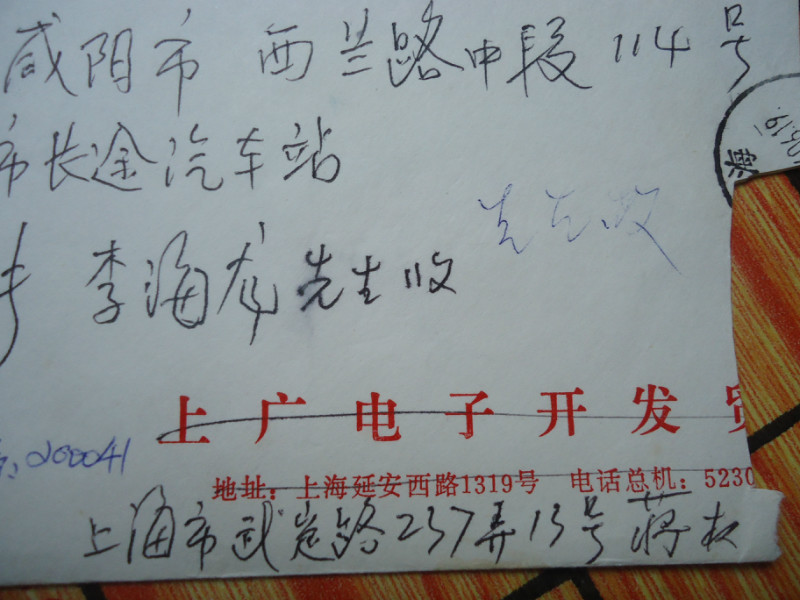 咸阳市 西兰路中段 114号
市长途汽车站
李海龙先生收
先生收
上广电子开发贸
200041
地址：上海延安西路1319号 电话总机：5230
上海市武定路237弄13号 蒋